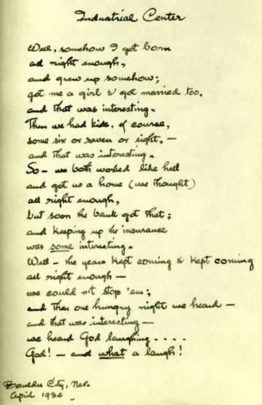 Industrial Center
Well, somehow I got born
all right enough,
and grew up somehow;
got me a girl & got married too,
and that was interesting.
Then we had kids, of course,
some six or seven or eight, —
and that was interesting.
So - we both worked like hell
and got us a home (we thought)
all right enough,
but soon the bank got that;
and keeping up the insurance
was some interesting.
Well - the years kept coming & kept coming
all right enough —
we could n't stop 'em;
and then one hungry night we heard —
and that was interesting —
we heard God laughing . . . .
God! - and what a laugh!
Boulder City, Nev.
April 1934